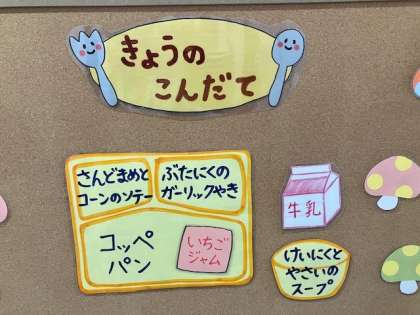 きょうの
こんだて
さんどまめと
コーンのソテー
ぶたにくの
ガーリックやき
コッペ
パン
いちご
ジャム
牛乳
けいにくと
やさいの
スープ